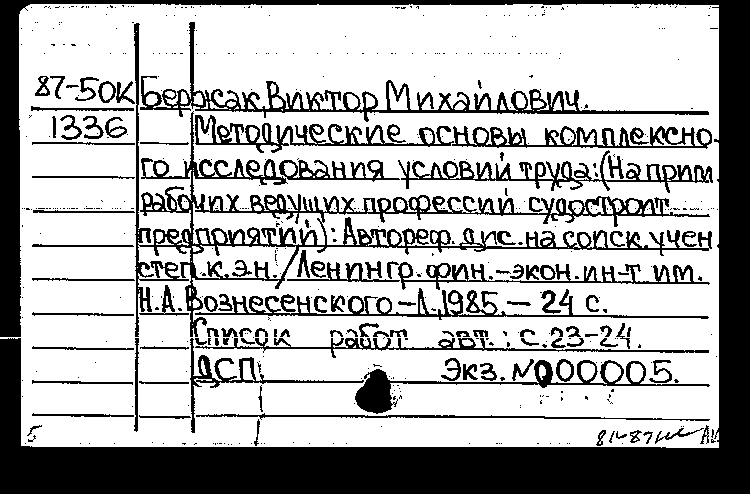 87-50К Бержак, Виктор Михайлович.
1336 Методические основы комплексно-
го исследования условий труда: (На прим.
рабочих ведущих профессий судостроит.
предприятий): Автореф. дис. на соиск. учен.
степ. к.э.н. / Ленингр. фин.-экон. ин-т им.
Н.А. Вознесенского - Л., 1985. - 24 с.
Список работ авт.: с.23-24.
ДСП. Экз. №000005.